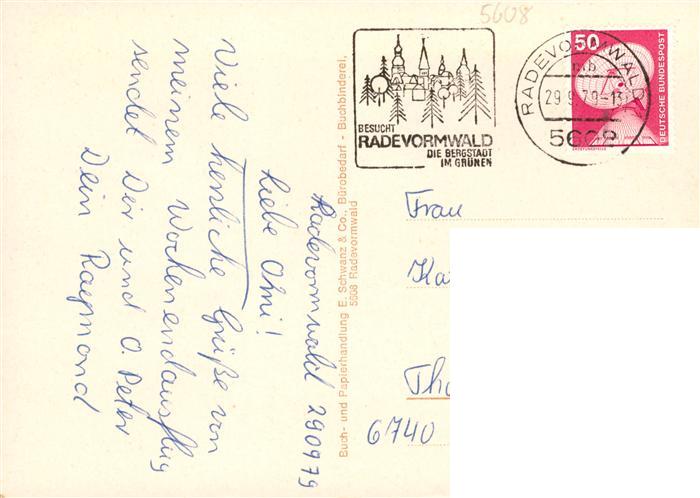 5608
BESUCHT
RADEVORMWALD
DIE BERGSTADT
IM GRÜNEN
RADEVORMWALD
29.9.79-13
5608
50
DEUTSCHE BUNDESPOST
Radevormwald 290979
Liebe Omi!
Viele herzliche Grüße von
meinem Wochenendausflug
sendet Dir und O. Peter
Dein Raymond
Buch- und Papierhandlung E. Schwanz & Co., Bürobedarf - Buchbinderei,
5608 Radevormwald
Frau
6740